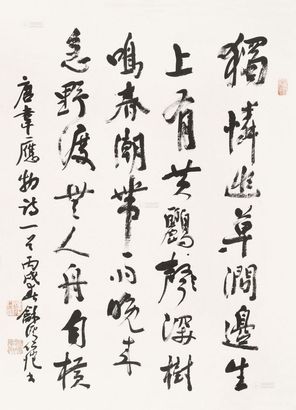 獨憐幽草澗邊生
上有黃鸝聲深樹
鳴春潮帶雨晚來
急野渡無人舟自橫
唐韋應物詩一首丙戌